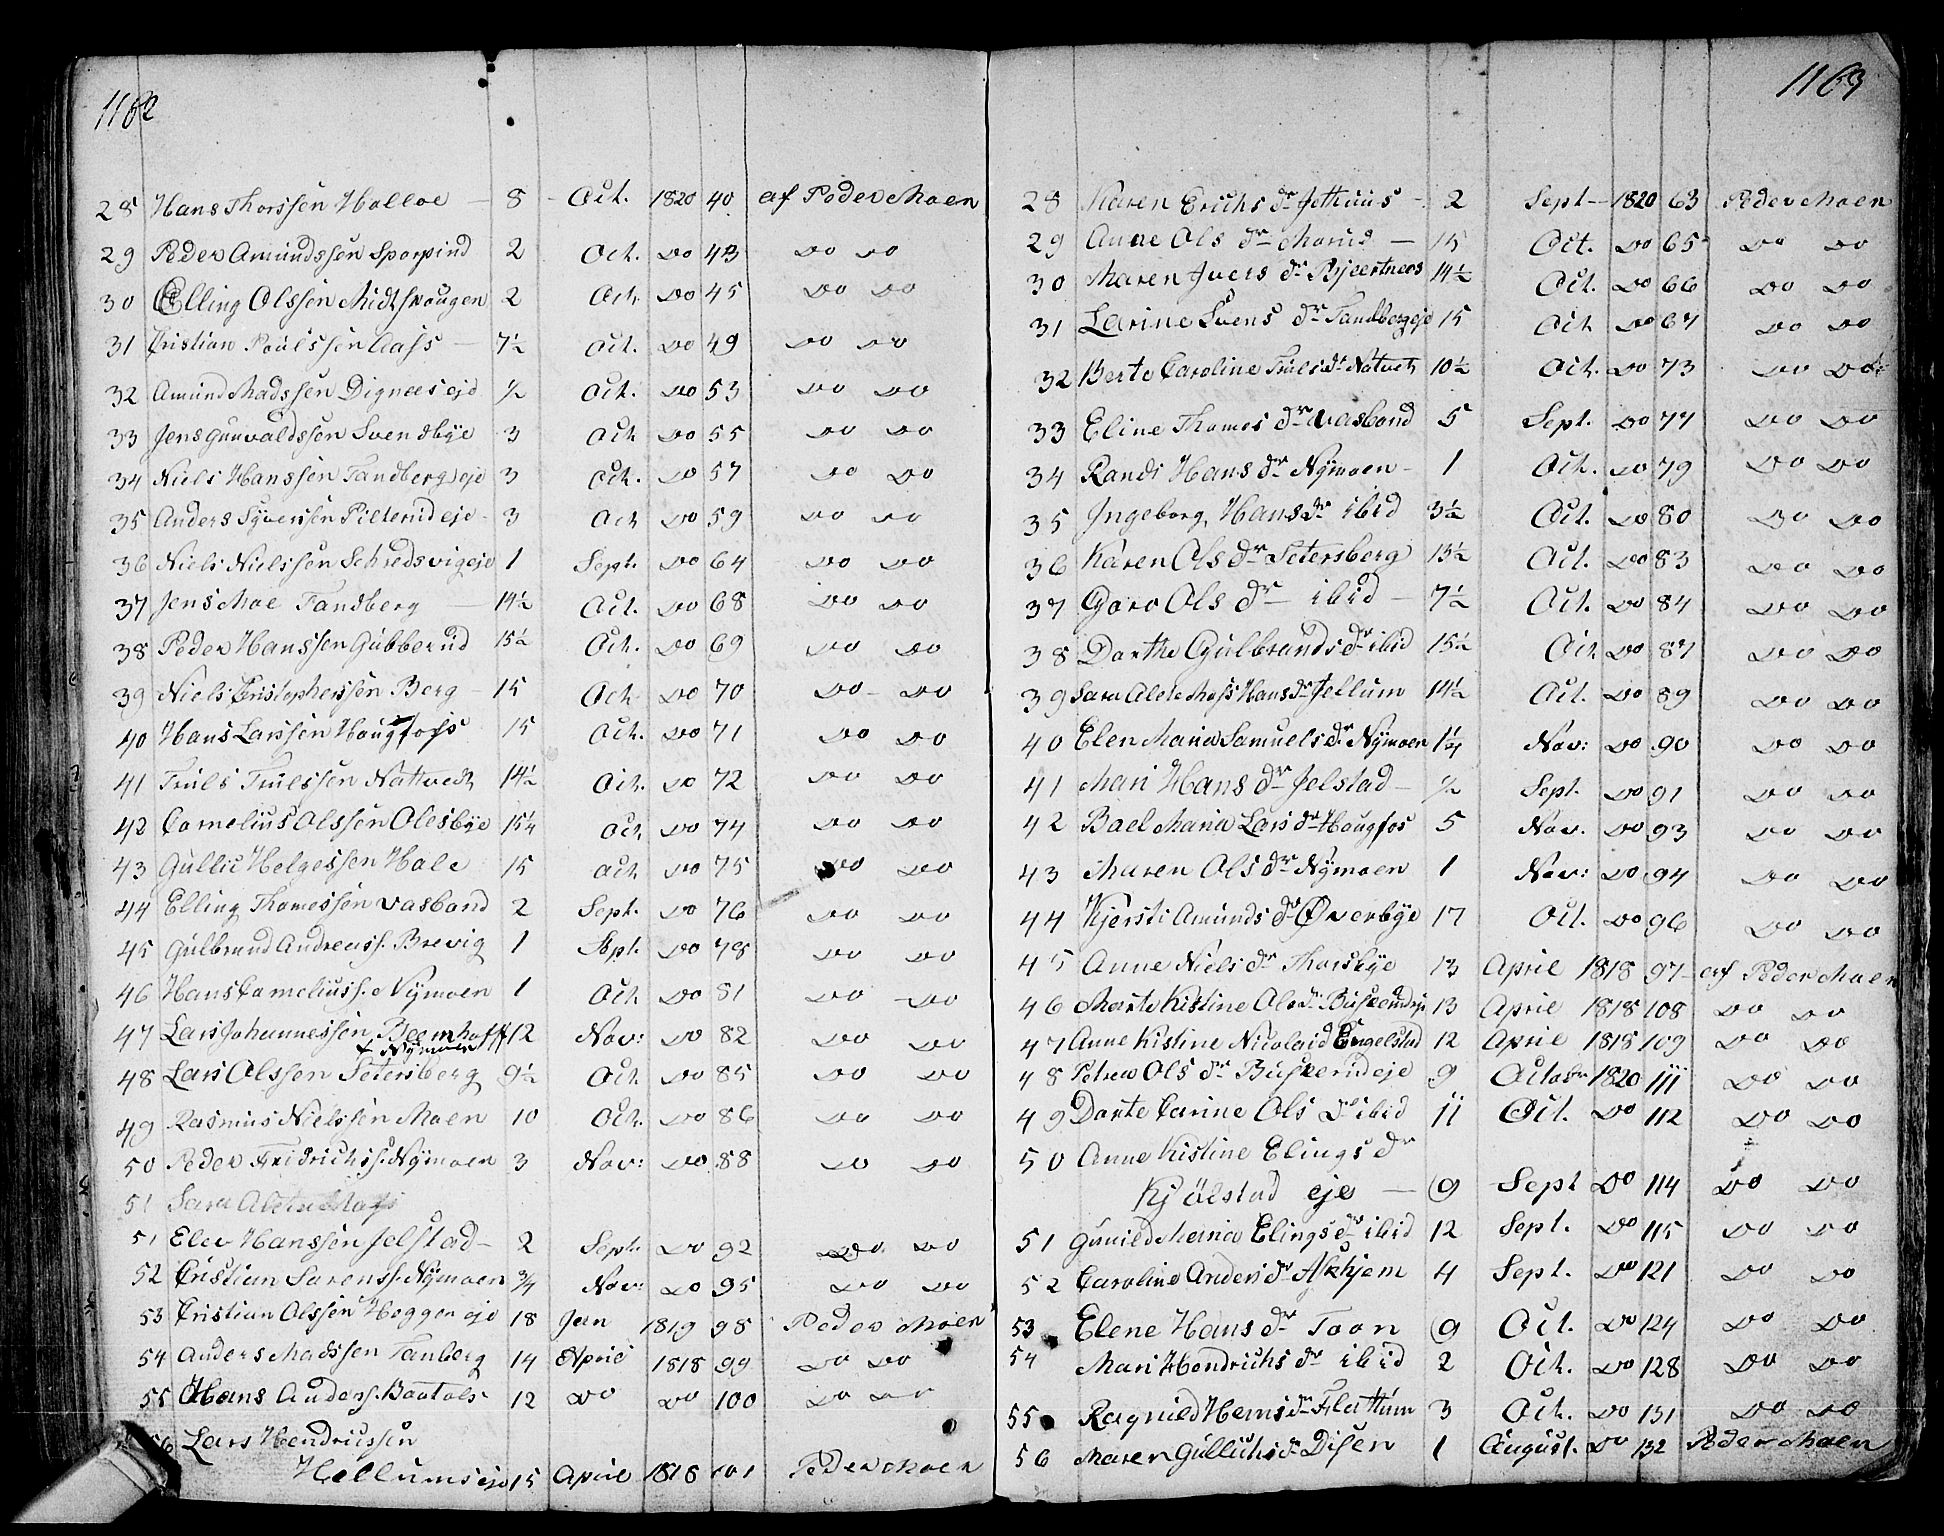 1162
28 Hans Thorssen Holloe — 8 - Oct. 1820 40 af Peder Moen
29 Peder Amundssen Sporpind 2 Oct. do 43 do do
30 Elling Olssen Midtshougen 2 Oct. do 45 do do
31 Cristian Poulssen Aass — 7½ Oct. do 49 do do
32 Amund Madssen Dignees eje ½ Oct. do 53 do do
33 Jens Gunvaldssen Svendbye 3 Oct do 55 do do
34 Niels Hanssen Tandberg eje 3 Oct. do 57 do do
35 Anders Syverssen Pilterud eje 3 Oct do 59 do do
36 Niels Nielssen Schredsvigeje 1 Sept. do 64 do do
37 Jens Moe Tandberg — 14½ Oct. do 68 do do
38 Peder Hanssen Gubberud 15½ Oct. do 69 do do
39 Niels Cristopherssen Berg - 15 Oct do 70 do do
40 Hans Larssen Hougfoss 15 Oct. do 71 do do
41 Truls Trulssen Nattvedt 14½ Oct. do 72 do do
42 Cornelius Olssen Olesbye 15¼ Oct do 74 do do
43 Gullic Helgessen Hole 15 Oct do 75 do do
44 Elling Thomessen Vasbond 2 Sept. do 76 do do
45 Gulbrand Andreass. Brevig 1 Sept. do 78 do do
46 Hans Corneliuss. Nymoen 1 Oct do 81 do do
47 Lars Johannessen Bleemhoff 12 Nov: do 82 do do
+ Nymoen
48 Lars Olssen Setersberg 9½ Oct do 85 do do
49 Rasmus Nielssen Moen 10 Oct. do 86 do do
50 Peder Fridrichs. Nymoen 3 Nov: do 88 do do
51 Sara Alete Moss
51 Elev Hanssen Jelstad - 2 Sept. do 92 do do
52 Cristian Sørenss. Nymoen ¾ Nov: do 95 do do
53 Cristian Olssen Heggen eje 18 Jan 1819 98 Peder Moen
54 Anders Madssen Tanberg 14 April 1818 99 do do
55 Hans Anderss. Baatols 12 do do 100 do do
56 Lars Hendrussen
Hellumseje 15 April 1818 101 Peder Moen
1163
28 Karen Erichs dr Jethuus - 2 Sept - 1820 63 Peder Moen
29 Anne Ols dr Morud — 15 Oct. do 65 do do
30 Maren Ivers dr Bjeertnees 14½ Oct. do 66 do do
31 Larine Svens dr Tandbergeje 15 Oct do 67 do do
32 Berte Caroline Truls dr Natvet 10½ Oct. do 73 do do
33 Eline Thomes dr Vasbond 5 Sept. do 77 do do
34 Randi Hans dr Nymoen - 1 Oct. do 79 do do
35 Ingeborg Hans dr ibid 3½ Oct. do 80 do do
36 Karen Ols dr Setersberg 13½ Oct. do 83 do do
37 Goro Ols dr ibid - 7½ Oct. do 84 do do
38 Dorthe Gulbrands dr ibid 15½ Oct do 87 do do
39 Sara Alete Moss Hans dr Jellum 14½ Oct. do 89 do do
40 Elen Maria Samuels dr Nymoen 1¼ Nov: do 90 do do
41 Mari Hans dr Jelstad - ½ Sept. do 91 do do
42 Bael Maria Lars dr Hougfos 5 Nov. do 93 do do
43 Maren Ols dr Nymoen 1 Nov: do 94 do do
44 Kjersti Amunds dr Øverbye 17 Oct. do 96 do do
45 Anne Niels dr Thorsbye 13 April 1818 97 af Peder Moen
46 Marte Kistine Ols dr Buskerudeje 13 April 1818 108 do do
47 Anne Kistine Nicolaid Engelstad 12 April 1818 109 do do
48 Petrea Ols dr Buskerudeje 9 Octobr 1820 111 do do
49 Dorte Carine Ols dr ibid 11 Oct. do 112 do do
50 Anne Kistine Elings dr
Kjølstad eje — 9 Sept do 114 do do
51 Gunild Maria Elings dr ibid 12 Sept. do 115 do do
52 Caroline Anders dr Askhjem 4 Sept. do 121 do do
53 Elene Hans dr Toon 9 Oct. do 124 do do
54 Mari Hendrichs dr ibid 2 Oct. do 128 do do
55 Ragnild Hans dr Flattum 3 Oct. do 131 do do
56 Maren Gullichs dr Disen 1 August. do 132 Peder Moen